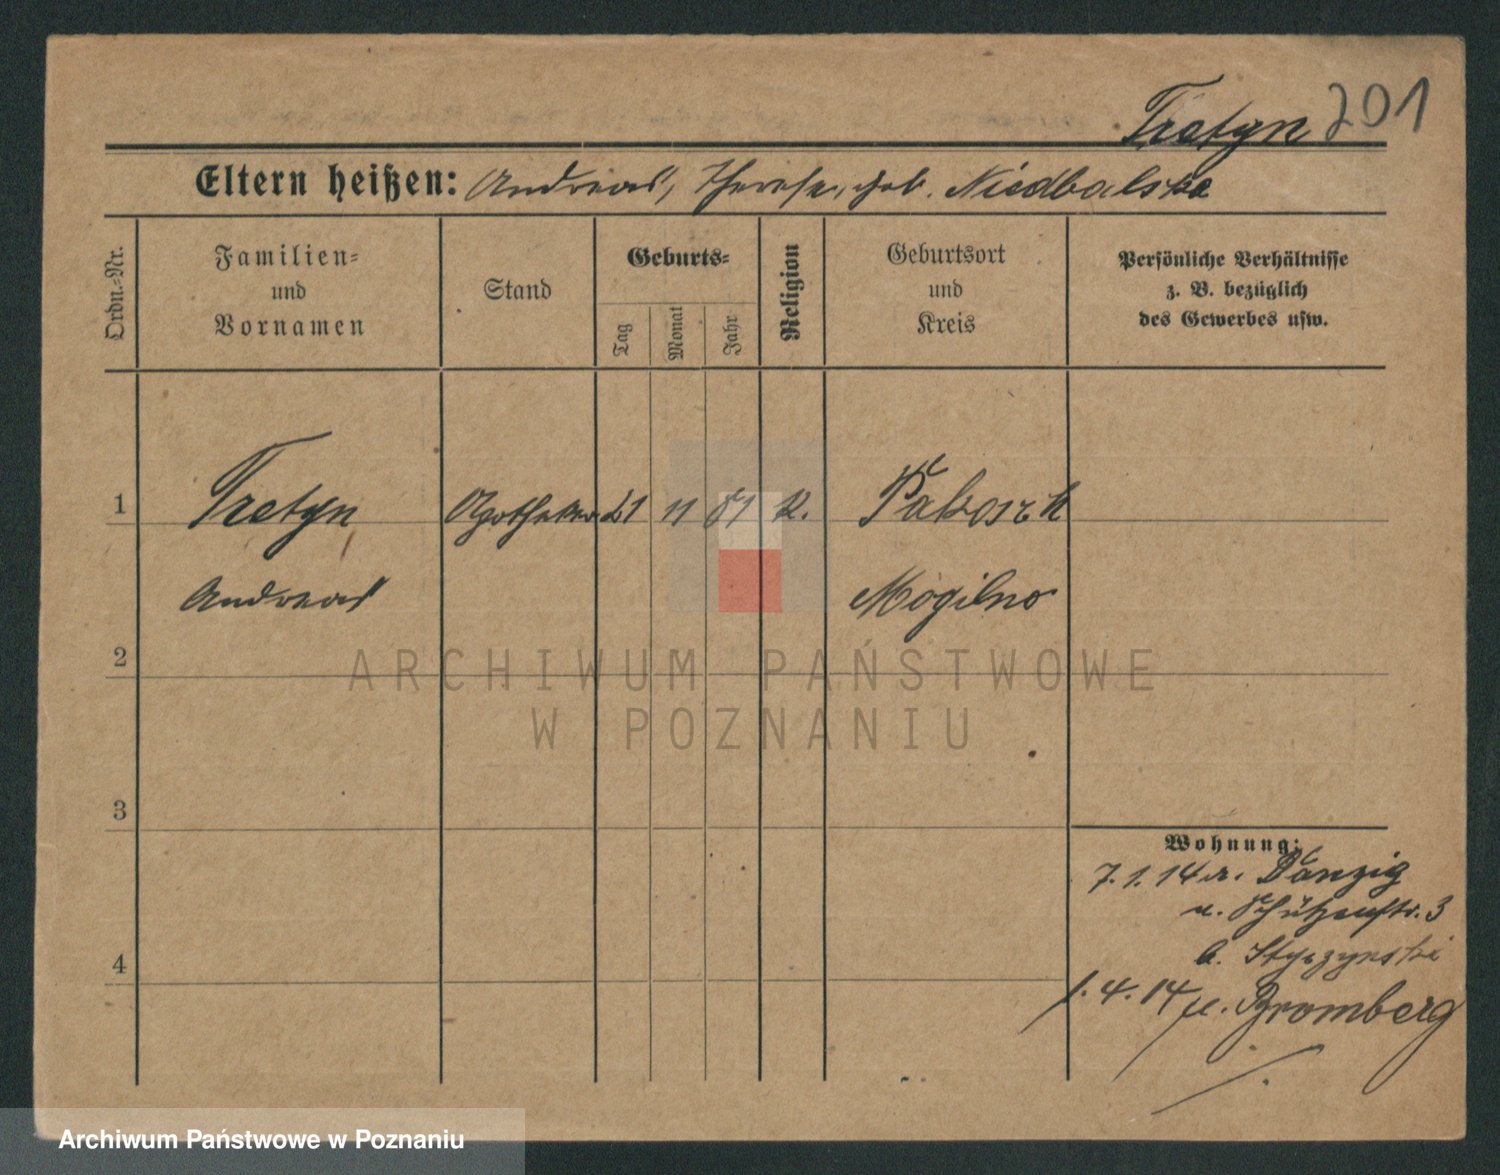 Tretyn 201
Eltern heißen: Andreas, Therese, geb. Niedbalska
Ordn.-Nr.
Familien-
und
Vornamen
Stand
Geburts-
Tag
Monat
Jahr
Religion
Geburtsort
und
Kreis
Persönliche Verhältnisse
z. B. bezüglich
des Gewerbes usw.
1 Tretyn Apotheker 21 11 81 K. Pakosch
Andreas Mogilno
2
ARCHIWUM PAŃSTWOWE
W POZNANIU
3
Wohnung:
7.1.14 Danzig
n. Schützenstr. 3
b. Styczynski
4
1.4.14 n. Bromberg
Archiwum Państwowe w Poznaniu